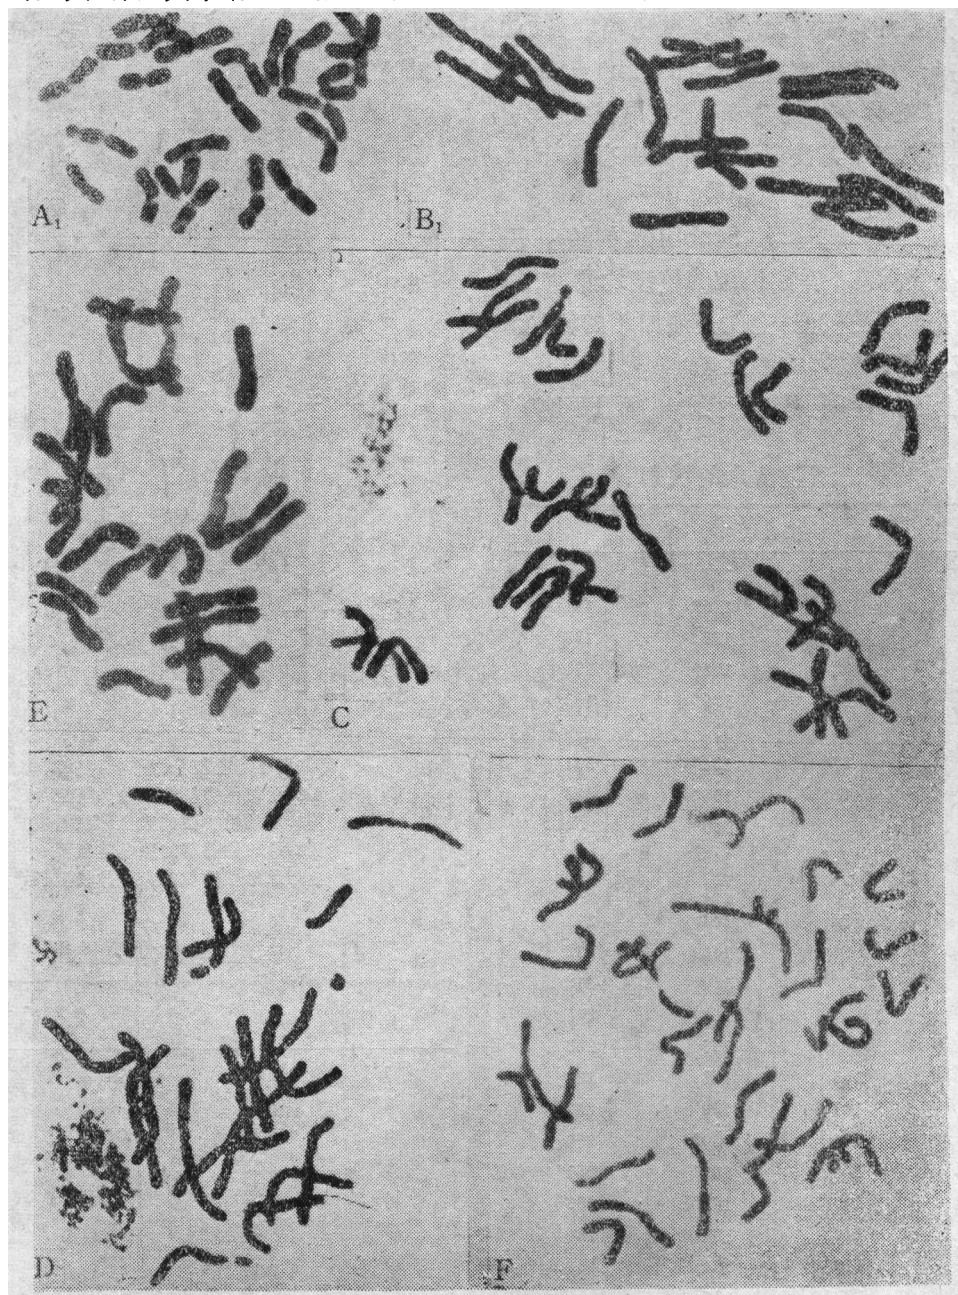 A₁
B₁
E
C
D
F